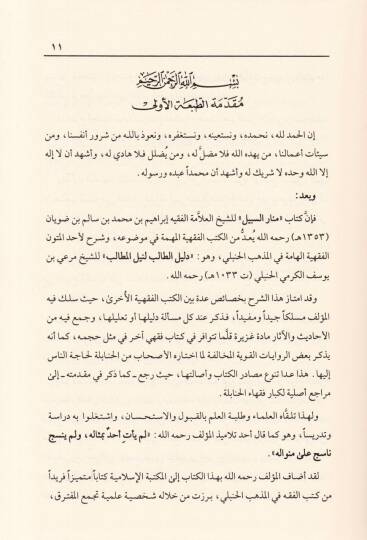 ١١
بسم الله الرحمن الرحيم
مُقَدِّمَة الطَّبْعَة الأولى
إن الحمد لله، نحمده، ونستعينه، ونستغفره، ونعوذ بالله من شرور أنفسنا، ومن
سيئات أعمالنا، من يهده الله فلا مضلَّ له، ومن يُضلل فلا هادي له، وأشهد أن لا إله
إلا الله وحده لا شريك له وأشهد أن محمداً عبده ورسوله.
وبعد:
فإنَّ كتاب «منار السبيل» للشيخ العلاَّمة الفقيه إبراهيم بن محمد بن سالم بن ضويان
(١٣٥٣هـ) رحمه الله يُعدُّ من الكتب الفقهية المهمة في موضوعه، وشرح لأحد المتون
الفقهية الهامة في المذهب الحنبلي، وهو: «دليل الطالب لنيل المطالب» للشيخ مرعي بن
يوسف الكرمي الحنبلي (ت ١٠٣٣هـ) رحمه الله.
وقد امتاز هذا الشرح بخصائص عدة بين الكتب الفقهية الأخرى، حيث سلك فيه
المؤلف مسلكاً جيداً ومفيداً، فذكر عند كل مسألة دليلها أو تعليلها، وجمع فيه من
الأحاديث والآثار مادة غزيرة قلَّما تتوافر في كتاب فقهي آخر في مثل حجمه، كما أنه
يذكر بعض الروايات القوية المخالفة لما اختاره الأصحاب من الحنابلة لحاجة الناس
إليها. هذا عدا تنوع مصادر الكتاب وأصالتها، حيث رجع ـ كما ذكر في مقدمته ـ إلى
مراجع أصلية لكبار فقهاء الحنابلة.
ولهذا تلقَّاه العلماء وطلبة العلم بالقبول والاستحسان، واشتغلوا به دراسة
وتدريساً، وهو كما قال أحد تلاميذ المؤلف رحمه الله: «لم يأتِ أحدٌ بمثاله، ولم ينسج
ناسج على منواله».
لقد أضاف المؤلف رحمه الله بهذا الكتاب إلى المكتبة الإسلامية كتاباً متميزاً فريداً
من كتب الفقه في المذهب الحنبلي، برزت من خلاله شخصية علمية تجمع المفترق،